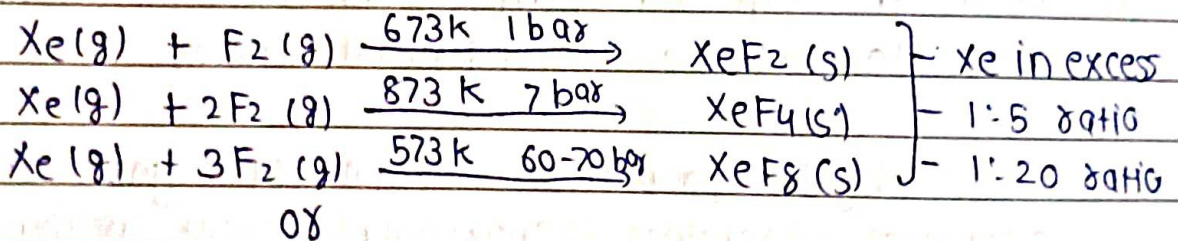 Xe(g) + F2(g) 673k 1bar → XeF2(s) - Xe in excess
Xe(g) + 2F2(g) 873 k 7bar → XeF4(s) - 1:5 ratio
Xe(g) + 3F2(g) 573k 60-70bar → XeF8(s) - 1:20 ratio
or